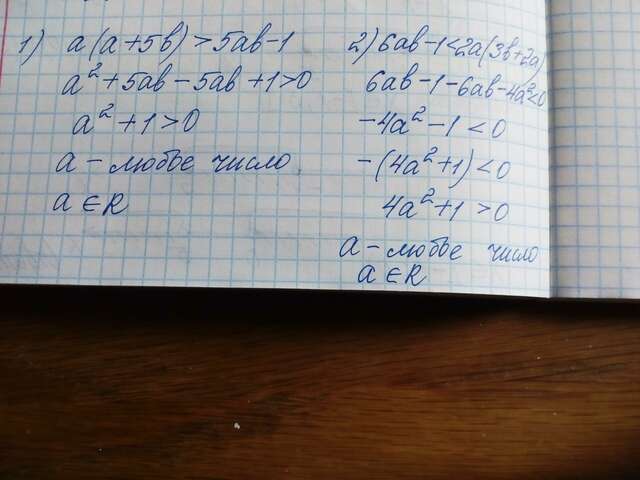 1) a(a+5b)>5ab-1
a²+5ab-5ab+1>0
a²+1>0
a-любое число
a∈R
2) 6ab-1<2a(3b+2a)
6ab-1-6ab-4a²<0
-4a²-1<0
-(4a²+1)<0
4a²+1>0
a-любое число
a∈R